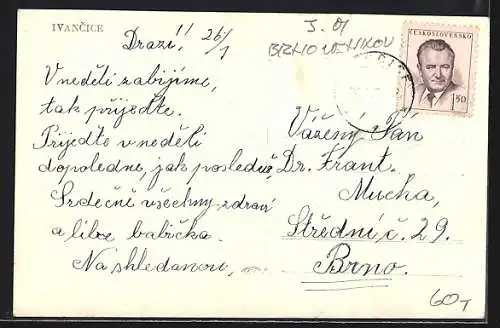 IVANČICE
Drazí!! 26/1
J. 01
BRNO VENKOV
ČESKOSLOVENSKO
1,50
V neděli zabijíme,
tak přijeďte.
Přijeďte v neděli
dopoledne, jak posledně,
Srdečně všechny zdraví
a líbe babička.
Na shledanou,
Vážený Pán
Dr. Frant.
Mucha,
Střední č. 29.
Brno.
60,-